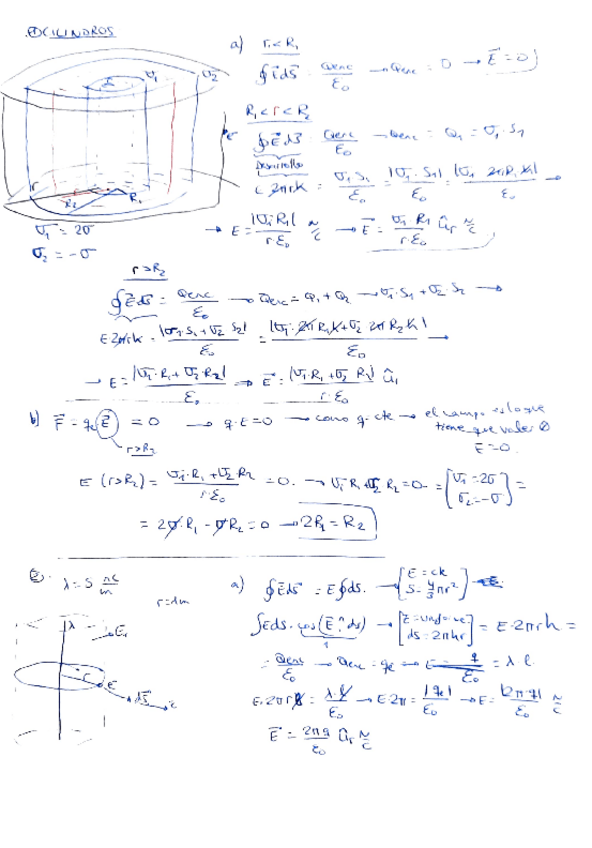 ① CILINDROS
a) r < R₁
∮ E dS = Qenc/ε₀ → Qenc = 0 → E⃗ = 0
R₁ < r < R₂
∮ E⃗ dS⃗ = Qenc/ε₀ → Qenc = Q₁ = σ₁ · S₁
E 2πrh = σ₁ S₁/ε₀ = |σ₁ · S₁|/ε₀ = |σ₁ 2πR₁ h|/ε₀ →
→ E = |σ₁ R₁|/r·ε₀ N/C → E⃗ = σ₁ R₁/r·ε₀ ûr N/C
σ₁ σ₂
R₂ R₁
σ₁ = 2σ
σ₂ = -σ
r > R₂
∮ E⃗ dS⃗ = Qenc/ε₀ → Qenc = Q₁ + Q₂ → σ₁·S₁ + σ₂·S₂ →
E 2πrh = |σ₁·S₁ + σ₂ S₂|/ε₀ = |σ₁·2πR₁h + σ₂ 2πR₂h|/ε₀ →
→ E = |σ₁·R₁ + σ₂·R₂|/ε₀ → E⃗ = |σ₁·R₁ + σ₂ R₂|/r·ε₀ û₁
b) F⃗ = q E⃗ = 0 → q·E = 0 → como q = cte → el campo es lo que
tiene que valer 0
r > R₂
E = 0.
E (r > R₂) = σ₁·R₁ + σ₂ R₂/r·ε₀ = 0. → σ₁ R + σ₂ R₂ = 0 = [σ₁ = 2σ σ₂ = -σ] =
= 2σ·R₁ - σR₂ = 0 → 2R₁ = R₂
②
λ = 5 nC/m
r = dm
a) ∮ E⃗ dS⃗ = E ∮ ds. → [E = ck S = 4/3 πr²]
∫ E ds · cos(E⃗ ^ ds) → [ds = 2πhr] = E·2πrh =
= Qenc/ε₀ → Qenc = qe → E = q/ε₀ = λ l
E·2πrl = λ·l/ε₀ → E·2π = |qe|/ε₀ → E = |2π·q|/ε₀ N/C
E⃗ = 2πq/ε₀ ûr N/C
λ
r E dS⃗